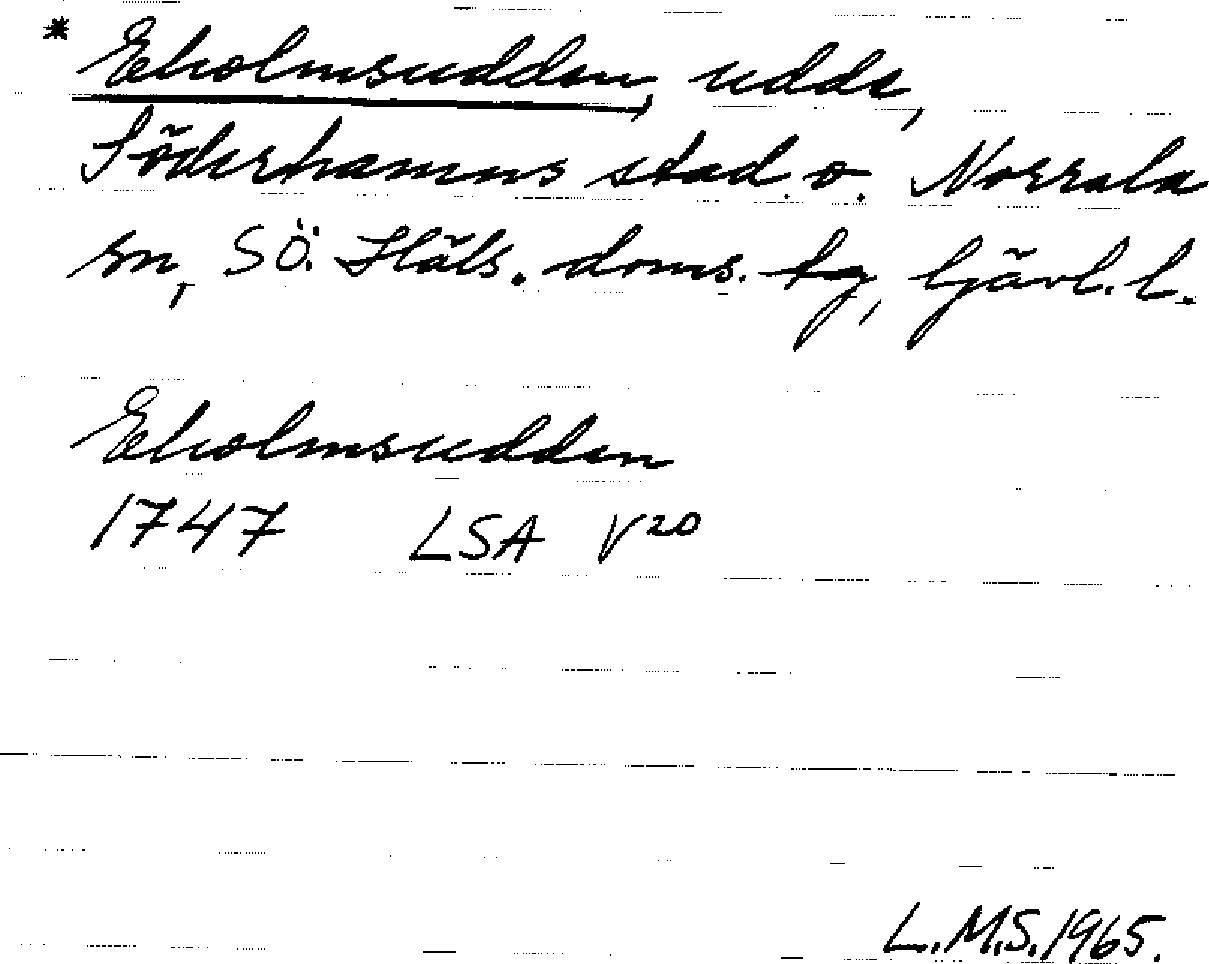 * Ekolmsudden, udde,
Söderhamns stad o. Norrala
sn, SÖ. Häls. doms. tg, Gävl. l.
Ekolmsudden
1747 LSA V20
L.M.S. 1965.